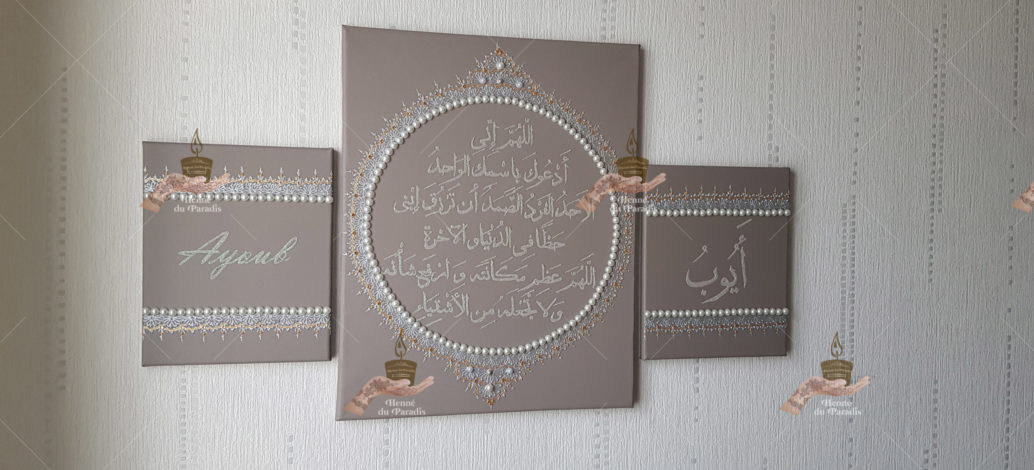 Ayoub
اللهم إني
أدعوك باسمك الواحد
الفرد الصمد أن ترزق إبني
حظا في الدنيا و الآخرة
اللهم عظم مكانته و ارفع شأنه
ولا تجعله من الأشقياء
أيوب
Henné
du Paradis
Henné
du Paradis
Henné
du Paradis